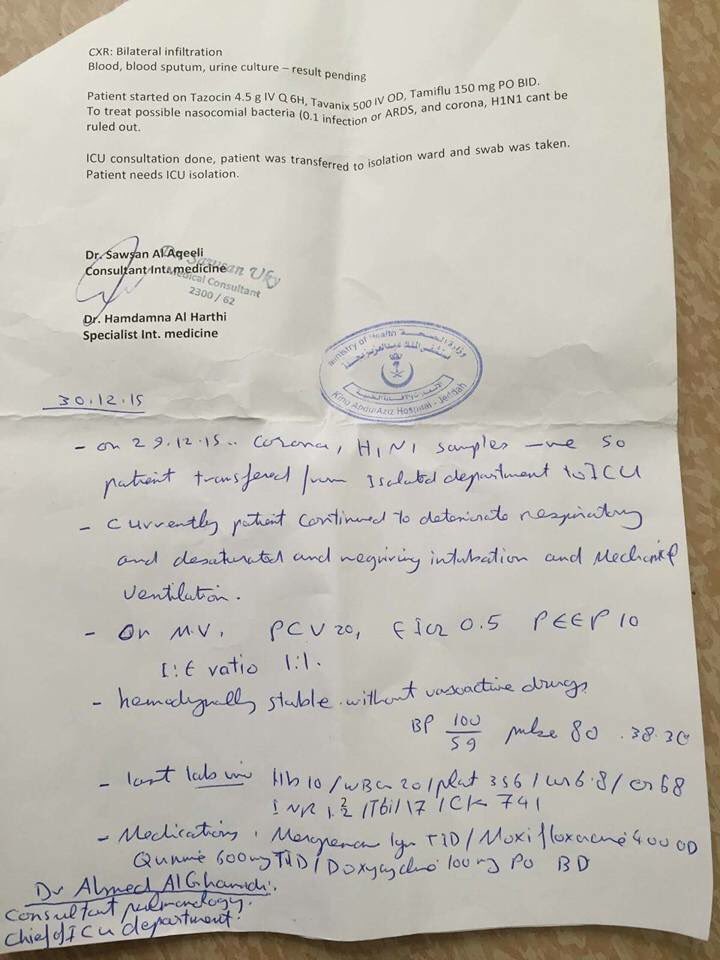 CXR: Bilateral infiltration
Blood, blood sputum, urine culture – result pending
Patient started on Tazocin 4.5 g IV Q 6H, Tavanix 500 IV OD, Tamiflu 150 mg PO BID.
To treat possible nasocomial bacteria (0.1 infection or ARDS, and corona, H1N1 cant be
ruled out.
ICU consultation done, patient was transferred to isolation ward and swab was taken.
Patient needs ICU isolation.
Dr. Sawsan Al Aqeeli
Consultant Int. medicine
Medical Consultant
2300 / 62
Dr. Hamdamna Al Harthi
Specialist Int. medicine
Ministry of Health وزارة الصحة
مستشفى الملك عبدالعزيز بجدة
King AbdulAziz Hospital - Jeddah
30.12.15
- on 29.12.15.. Corona, H1N1 samples -ve so
patient transfered from Isolated department to ICU
- Currently patient continued to deteriorate respiratory
and desaturated and requiring intubation and Mechanical
ventilation.
- On M.V. PCV 20, FiO2 0.5 PEEP 10
I:E ratio 1:1.
- hemodynally stable without vasoactive drugs
BP 100/59 pulse 80 .38.3C
- last lab inv Hb 10 / WBC 20 / plat 356 / ur 6.8 / cr 68
INR 1.2 / Tbil 17 / CK 741
- Medications. Meropenem 1gm TID / Moxifloxacine 400 OD
Quinine 600mg TID / Doxycycline 100mg PO BD
Dr Ahmed AlGhamdi.
Consultant pulmonology.
Chief of ICU department.